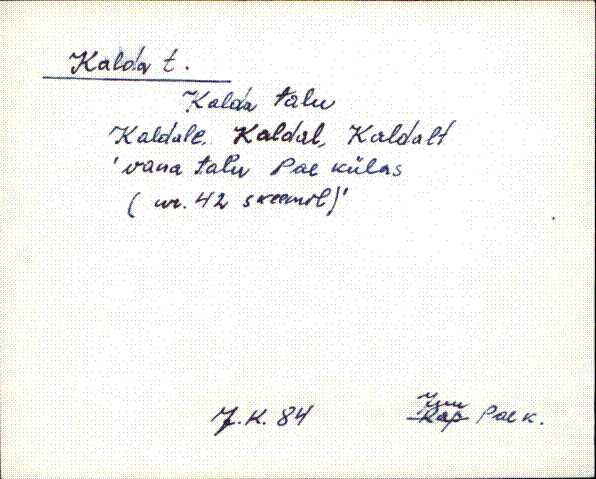 Kalda t.
Kalda talu
Kaldale, Kaldal, Kaldalt
'vana talu Pae külas
(nr. 42 skeemil)'
Juu
J.K. 84 Rap Pae k.